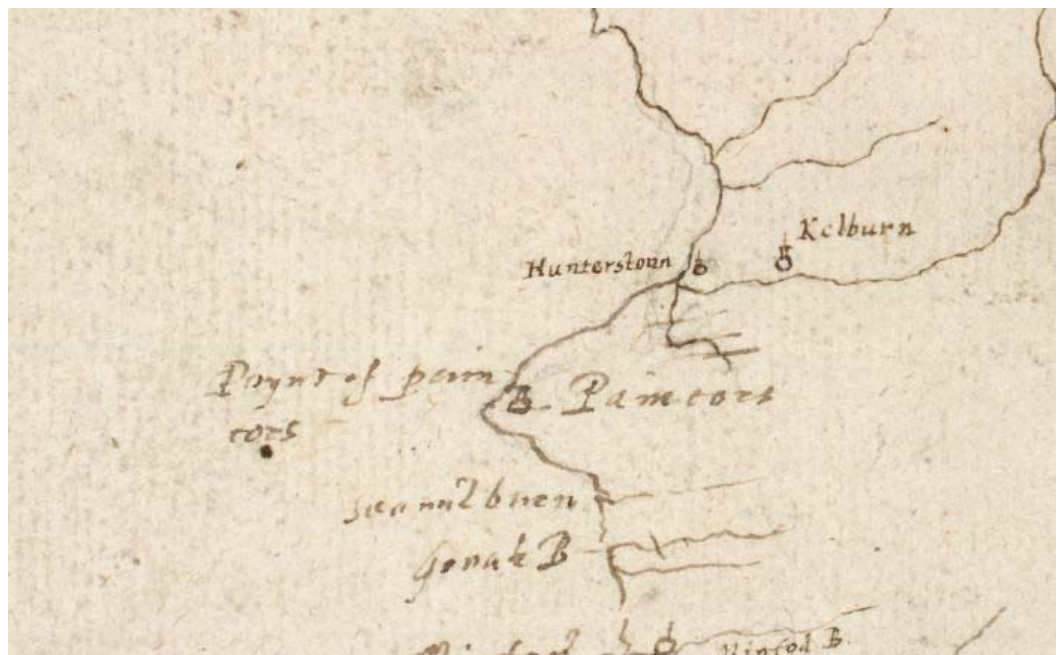 Kelburn
Hunterstoun
Poynt of pain
tors
Paincors
seamilburn
Gouk B
Kinsod B.